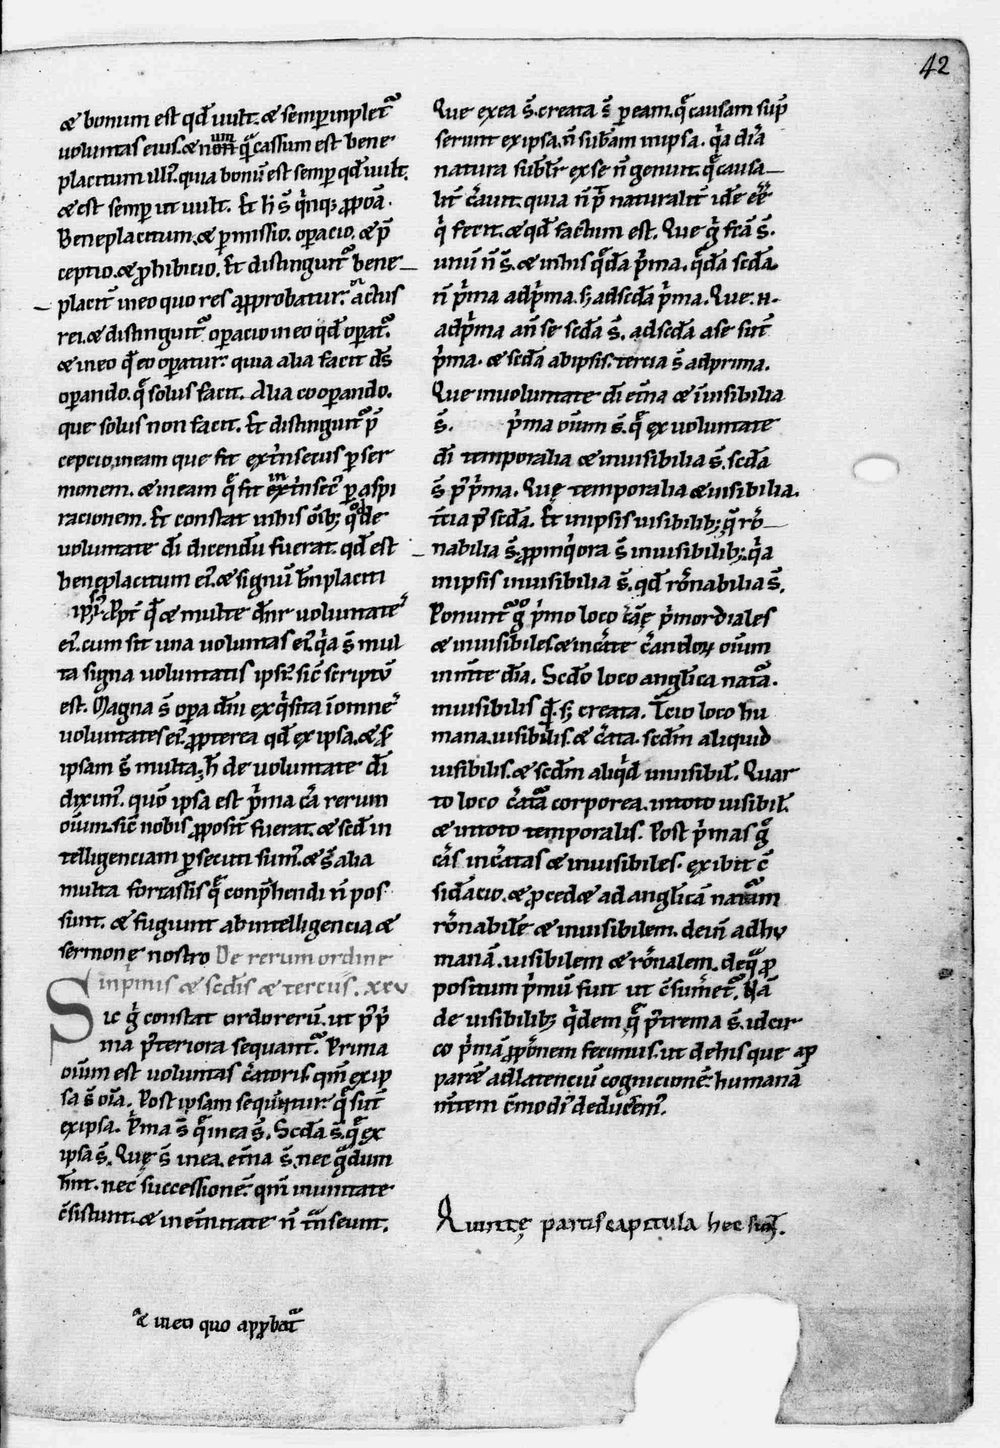 42
æ bonum est qd̄ uult. æ semper inplet᷑
uoluntas eius. æ non qͣ cassum est bene
placitum illi᷑. quia bonū est semper qd̄ uult.
æ est semper ut uult. Et h̄ s̄ qͥnq; ꝓpoā.
Beneplacitum. æ ꝑmissio. oꝑacio. æ p̄
ceptio. æ ꝓhibicio. Et distinguit᷑ bene
placit̄ in eo quo res aꝓprobatur. actus
rei. æ distinguit᷑ oꝑacio in eo qd̄ oꝑat᷑.
æ in eo qd̄ eo oꝑatur. quia alia facit ds̄
oꝑando. qͣ solus facit. Alia cooꝑando.
que solus non facit. Et distinguit᷑ p̄
cepcio. in eam que fit extͥnsecus ꝑ ser
monem. æ in eam qͣ fit intͥnsec᷒ ꝑ aspi
racionem. Et constat in his oīb; qͦ de
uoluntate dī dicendū fuerat. qd̄ est
beneplacitum ei᷒. æ signū bn̄placiti
ipsi᷒. Ꝓpt᷑ qd̄ æ multe dn̄r uoluntate᷒
ei᷒. cum sit una uoluntas ei᷒. qͥa s̄ mul
ta signa uoluntatis ipsi᷒. sic̄ scriptū
est. Magna s̄ oꝑa dn̄i exqͥsita ī omne᷒
uoluntates ei᷒. ꝓpterea qd̄ ex ipsa. æ ꝑ
ipsam s̄ multa. h̄ de uoluntate dī
diximꝰ. quō ipsa est pͥma cā rerum
oīum. sic̄ nobis ꝓposit̄ fuerat. æ scd̄ in
telligenciam ꝑsecuti sumꝰ. æ s̄ alia
multa fortassis qͣ conp̄hendi n̄ pos
sunt. æ fugiunt ab intelligencia æ
sermone nostro De rerum ordine
in pͥmis æ scd̄is æ terciis. xxv
Sic gͦ constat ordo rerū. ut p᷒ pͥ
ma p᷒teriora sequant᷑. Prima
oīum est uoluntas cͬatoris. qm̄ ex ip
sa s̄ oīa. Post ipsam sequntur. qͣ sūt
ex ipsa. Pͥma s̄ qͣ in ea s̄. Scd̄a s̄. qͣ ex
ipsa s̄. Quę s̄ in ea. et̄na s̄. nec gͣdum
hn̄t. nec successionē. qm̄ in unitate
c̄sistunt. æ in et̄nitate n̄ tn̄seunt.
æ in eo quo apꝓbat᷑
Que ex ea s̄. creata s̄ ꝑ eam. qͣ causam sup̄
serunt ex ipsa. n̄ subām in ipsa. qͥa diā
natura subl̄r ex se n̄ genuit. qͣ causa
lit̄ cͬauit. quia n̄ pͭ naturalit̄ idē eē
qͥ fecit. æ qd̄ factum est. Que gͦ fcā s̄.
unū n̄ s̄. æ in his qͣdā pͥma. qͣdā scd̄a.
n̄ pͥma ad pͥma. s; ad scd̄a pͥma. Que. n̄.
ad pͥma an̄ se scd̄a s̄. ad scd̄a a se sūt
pͥma. æ scd̄a ab ipsis. tercia s̄ ad prima.
Que in uoluntate dī et̄na æ īuisibilia
s̄. pͥma oīum s̄. qͣ ex uoluntate
dī temporalia æ inuisibilia s̄. scd̄a
s̄ p᷒ pͥma. Quę temporalia æ uisibilia.
t̄cia p᷒ scd̄a. Et in ipsis uisibilib; qͣ rō
nabilia s̄. ꝓpinqͥora s̄ inuisibilib;. qͥa
in ipsis inuisibilia s̄. qd̄ rōnabilia s̄.
Ponunt᷑ gͦ pͥmo loco cāę pͥmordiales
æ inuisibiles. æ incͬate cͬandoꝝ oīum
in m̄te dīa. Scd̄o loco anglica nat̄a.
inuisibilis qd̄. s; creata. T̄cio loco hu
mana. uisibilis. æ cͬata. scd̄m aliquid
uisibilis. æ scd̄m aliqͥd inuisibil̄. Quar
to loco cͬatā corporea. in toto uisibil̄.
æ in toto temporalis. Post pͥmas gͦ
cās incͬatas æ inuisibiles. exibit c̄
sidacio. æ ꝓcedæ ad anglicā naturam
rōnabilē æ inuisibilem. dein̄ ad hu
manā. uisibilem æ rōnalem. de qͣ ꝓ
positum pͥmū fuit ut c̄sumet᷑. Nā
de uisibilib; qͥdem qͣ p᷒trema s̄. idcir
co pͥmā ꝓpōnem fecimus. ut de his que ap
parēt ad latenciū cognicionē. humanā
m̄tem c̄modi᷒ deducem᷒.
Quintę partis capitula hec sunt.